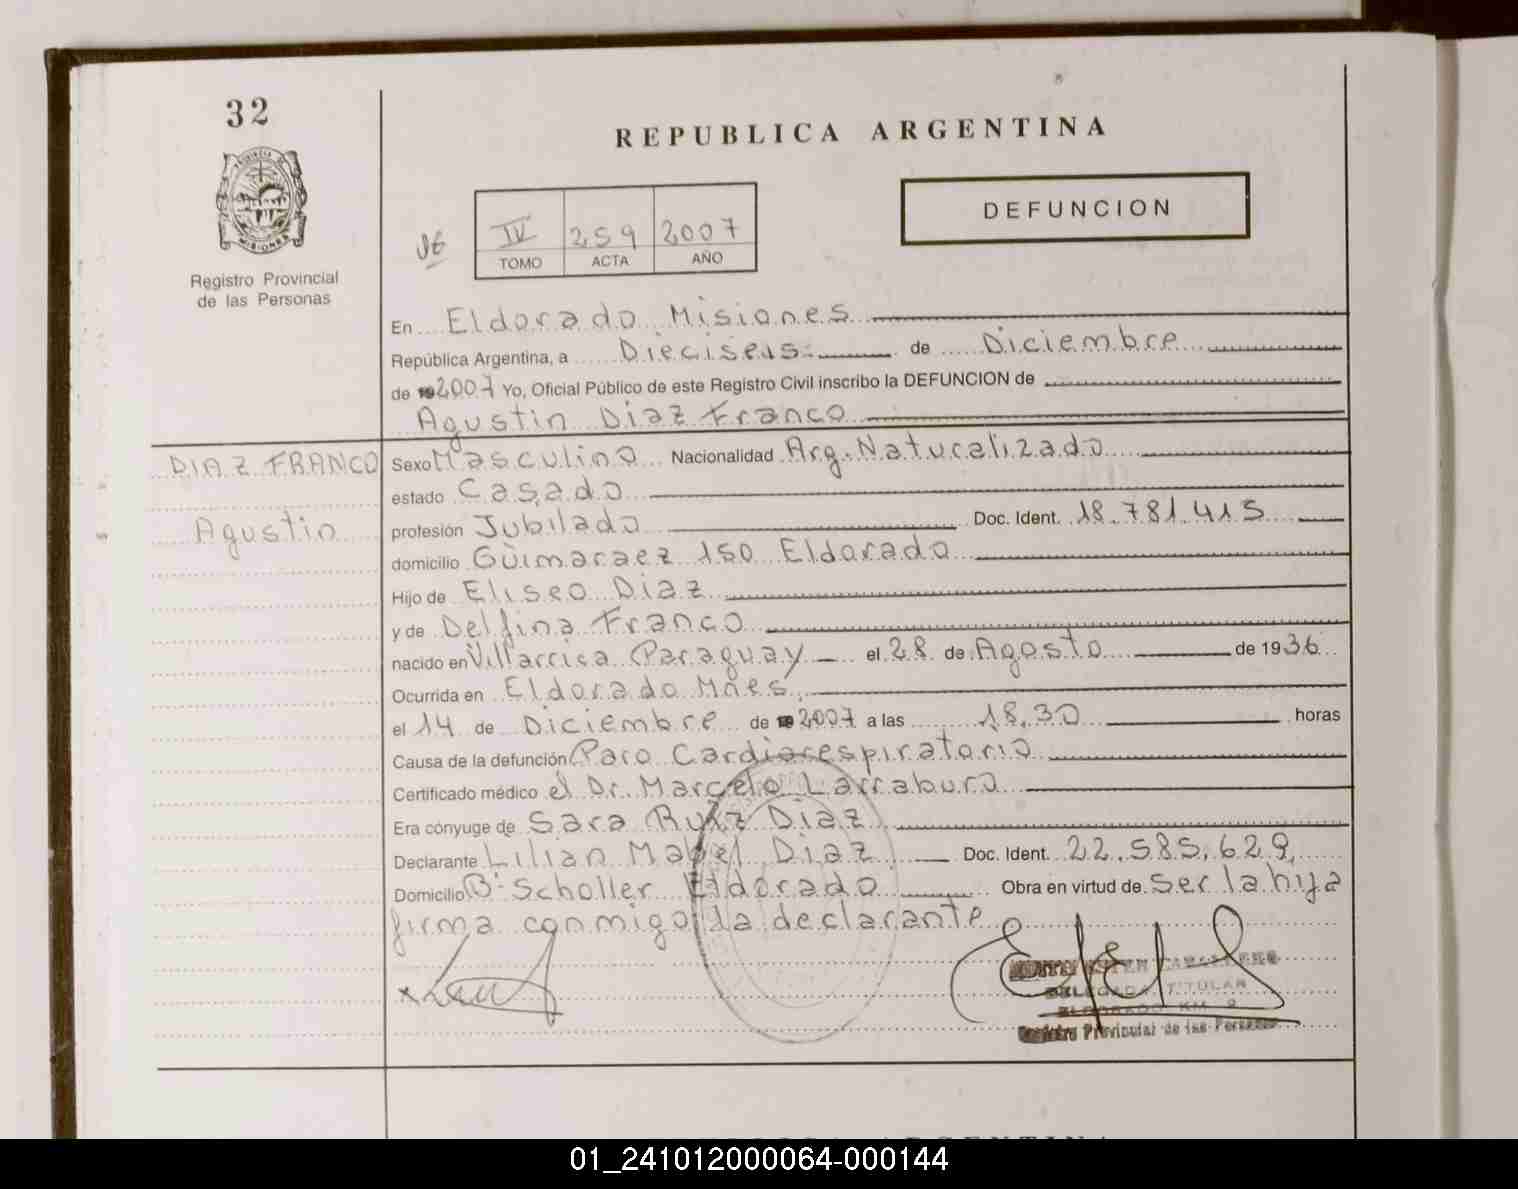 32
REPUBLICA ARGENTINA
DEFUNCION
IV 259 2007
TOMO ACTA AÑO
Registro Provincial
de las Personas
En Eldorado Misiones
República Argentina, a Dieciseis de Diciembre
de 2007 Yo, Oficial Público de este Registro Civil inscribo la DEFUNCION de
Agustin Diaz Franco
DIAZ FRANCO
Agustin
Sexo Masculino Nacionalidad Arg. Naturalizado
estado Casado
profesión Jubilado Doc. Ident. 18.781.415
domicilio Güimaraez 150 Eldorado
Hijo de Eliseo Diaz
y de Delfina Franco
nacido en Villarrica Paraguay el 28 de Agosto de 1936
Ocurrida en Eldorado Mnes.
el 14 de Diciembre de 2007 a las 18,30 horas
Causa de la defunción Paro Cardiorespiratorio
Certificado médico el Dr. Marcelo Larraburo
Era cónyuge de Sara Ruiz Diaz
Declarante Lilian Mabel Diaz Doc. Ident. 22.585.629
Domicilio B° Scholler Eldorado Obra en virtud de Ser la hija
firma conmigo la declarante
DELEGADA TITULAR
ELDORADO KM. 9
Registro Provincial de las Personas
01_241012000064-000144